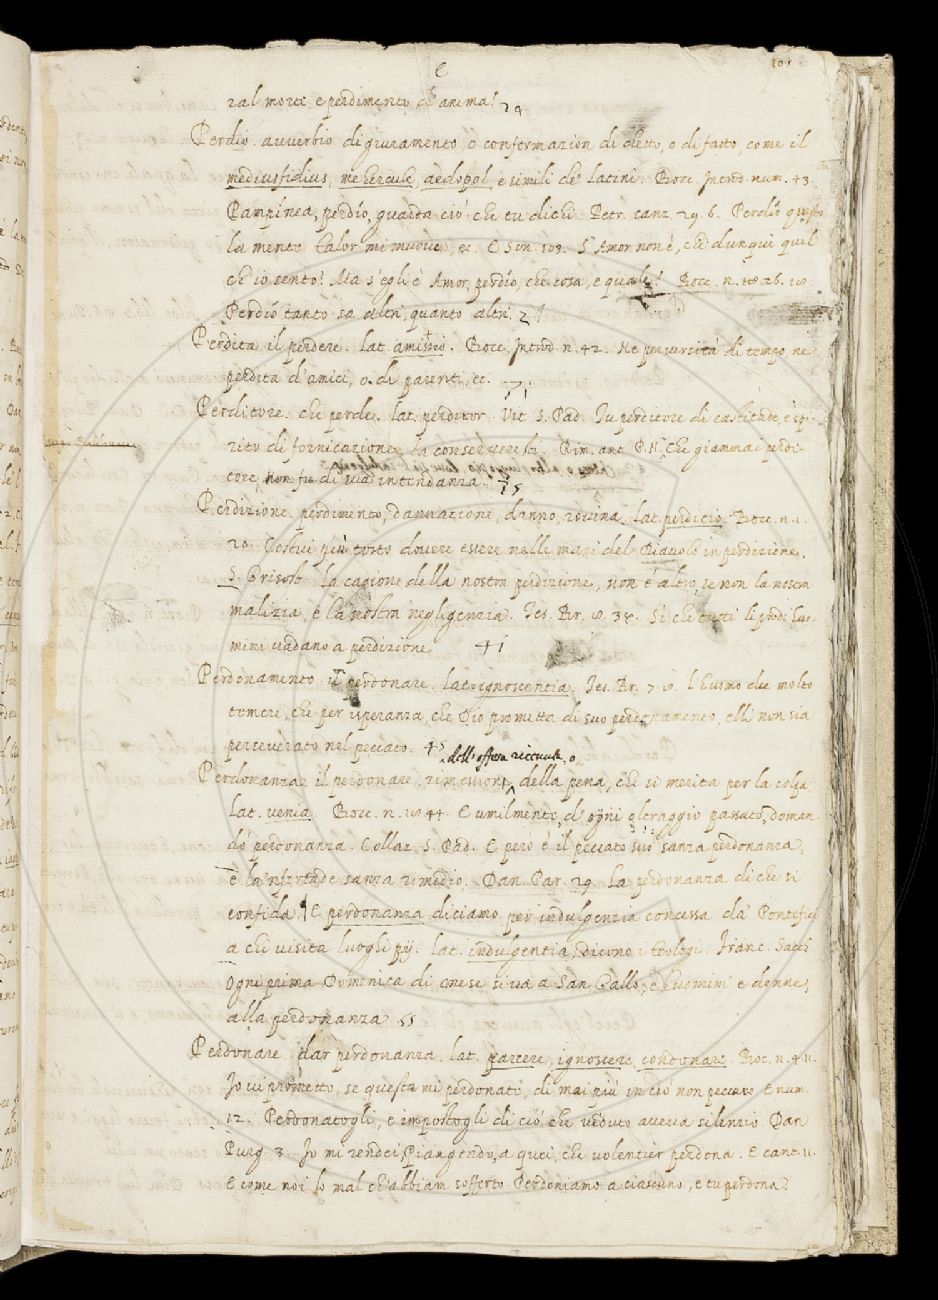 e
105
ral morte e perdimento d'anima. 29
Perdio avverbio di giuramento, o confermazion di detto, o di fatto, come il
mediusfidius, mehercule, aedopol, e simili de' latini. Bocc. Introd. num. 43.
Pampinea, perdio, guarda ciò che tu dichi. Petr. canz. 29. 6. Perdio questo
la mente talor mi muova, ec. E Son. 103. S'Amor non è, che dunque è quel
ch'io sento? Ma s'egli è Amor, perdio, che cosa, e quale? Bocc. n. 26. 10.
Perdio tanto sa altri, quanto altri. 21
Perdita il perdere. lat. amissio. Bocc. Introd. n. 42. Ne perversità di tempo, ne
perdita d'amici, o di parenti, ec.
Perditore. che perde. lat. perditor. Vit. S. Pad. Tu perditore di castitade, e spi-
rito di fornicazione la conserveresti. Rim. ant. P. N. Che giammai perdi-
tore non fu di sua intendanza. 35
Perdizione. perdimento, dannazione, danno, rovina. lat. perdicio. Bocc. n. 1.
20. Costui più tosto dovere essere nelle mani del Diavolo in perdizione.
S. Grisost. la cagione della nostra perdizione, non è altro, se non la nostra
malizia, e la nostra negligenzia. Tes. Br. 38. Sì che tutti li prodi huo-
mini vadano a perdizione 41
Perdonamento il perdonare. lat. ignoscentia. Tes. Br. 7. L'huomo dee molto
temere, che per isperanza, che Dio prometta di suo perdonamento, elli non sia
perseverato nel peccato. 45
dell'offesa ricevuta, o
Perdonanza il perdonare remissione della pena, che si merita per la colpa
lat. venia. Bocc. n. 44. E umilmente, d'ogni oltraggio passato, doman-
dò perdonanza. Collaz. S. Pad. E però è il peccato suo sanza perdonanza,
e la 'nfertade sanza rimedio. Dan. Par. 29. la perdonanza di che si
confida. E perdonanza diciamo per indulgenzia concessa da' Pontefici
a chi visita luoghi pij. lat. indulgentia, dicono i teologi. Franc. Sacch.
Ogni prima Domenica di mese si va a San Gallo, e huomini e donne,
alla perdonanza 55
Perdonare dar perdonanza. lat. parcere, ignoscere, condonare. Boc. n. 4. 11.
Io vi prometto, se questa mi perdonate, di mai più in ciò non peccare. E num.
12. Perdonatogli, e impostogli di ciò che veduto aveva silenzio. Dan.
Purg. 3. Io mi rendei, piangendo, a quei, che volentier perdona. E cant. 11.
E come noi lo mal ch'abbiam sofferto Perdoniamo a ciascuno, e tu perdona.